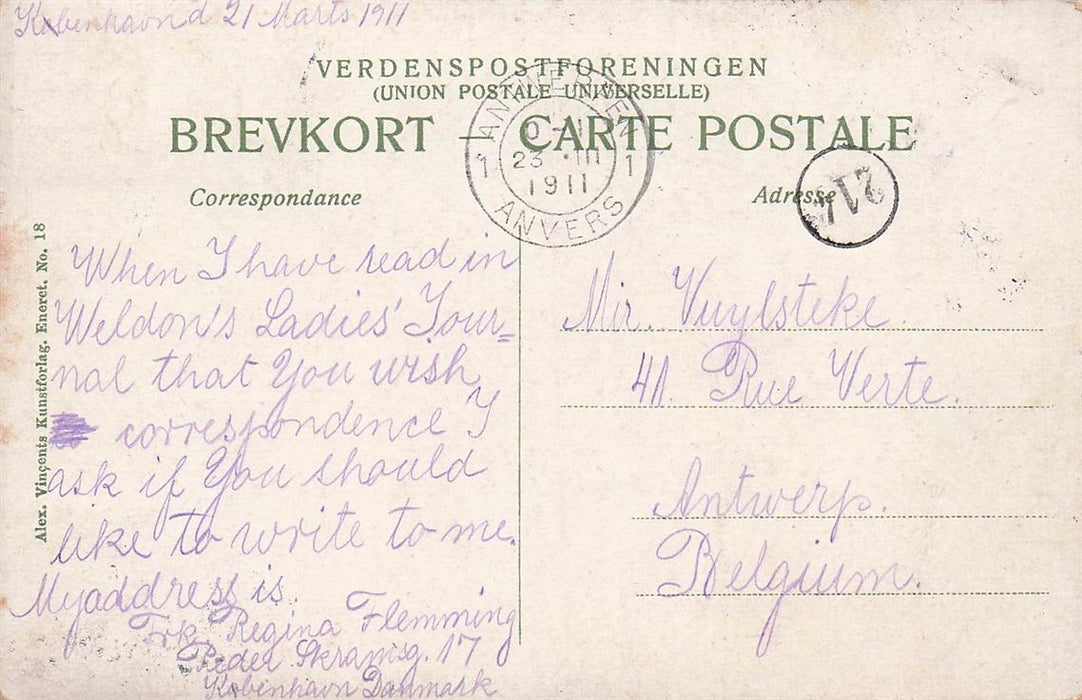 København d 21 Marts 1911
VERDENSPOSTFORENINGEN
(UNION POSTALE UNIVERSELLE)
BREVKORT – CARTE POSTALE
ANTWERPEN
1 23 III 1
1911
ANVERS
Correspondance
Adresse
Alex. Vincents Kunstforlag. Eneret. No. 18
When I have read in
Weldon's Ladies' Jour=
nal that You wish
correspondence I
ask if You should
like to write to me.
My address is.
Frk. Regina Flemming
Peder Skramsg. 17
København Danmark
Mir. Vuylsteke.
41. Rue Verte.
Antwerp.
Belgium.